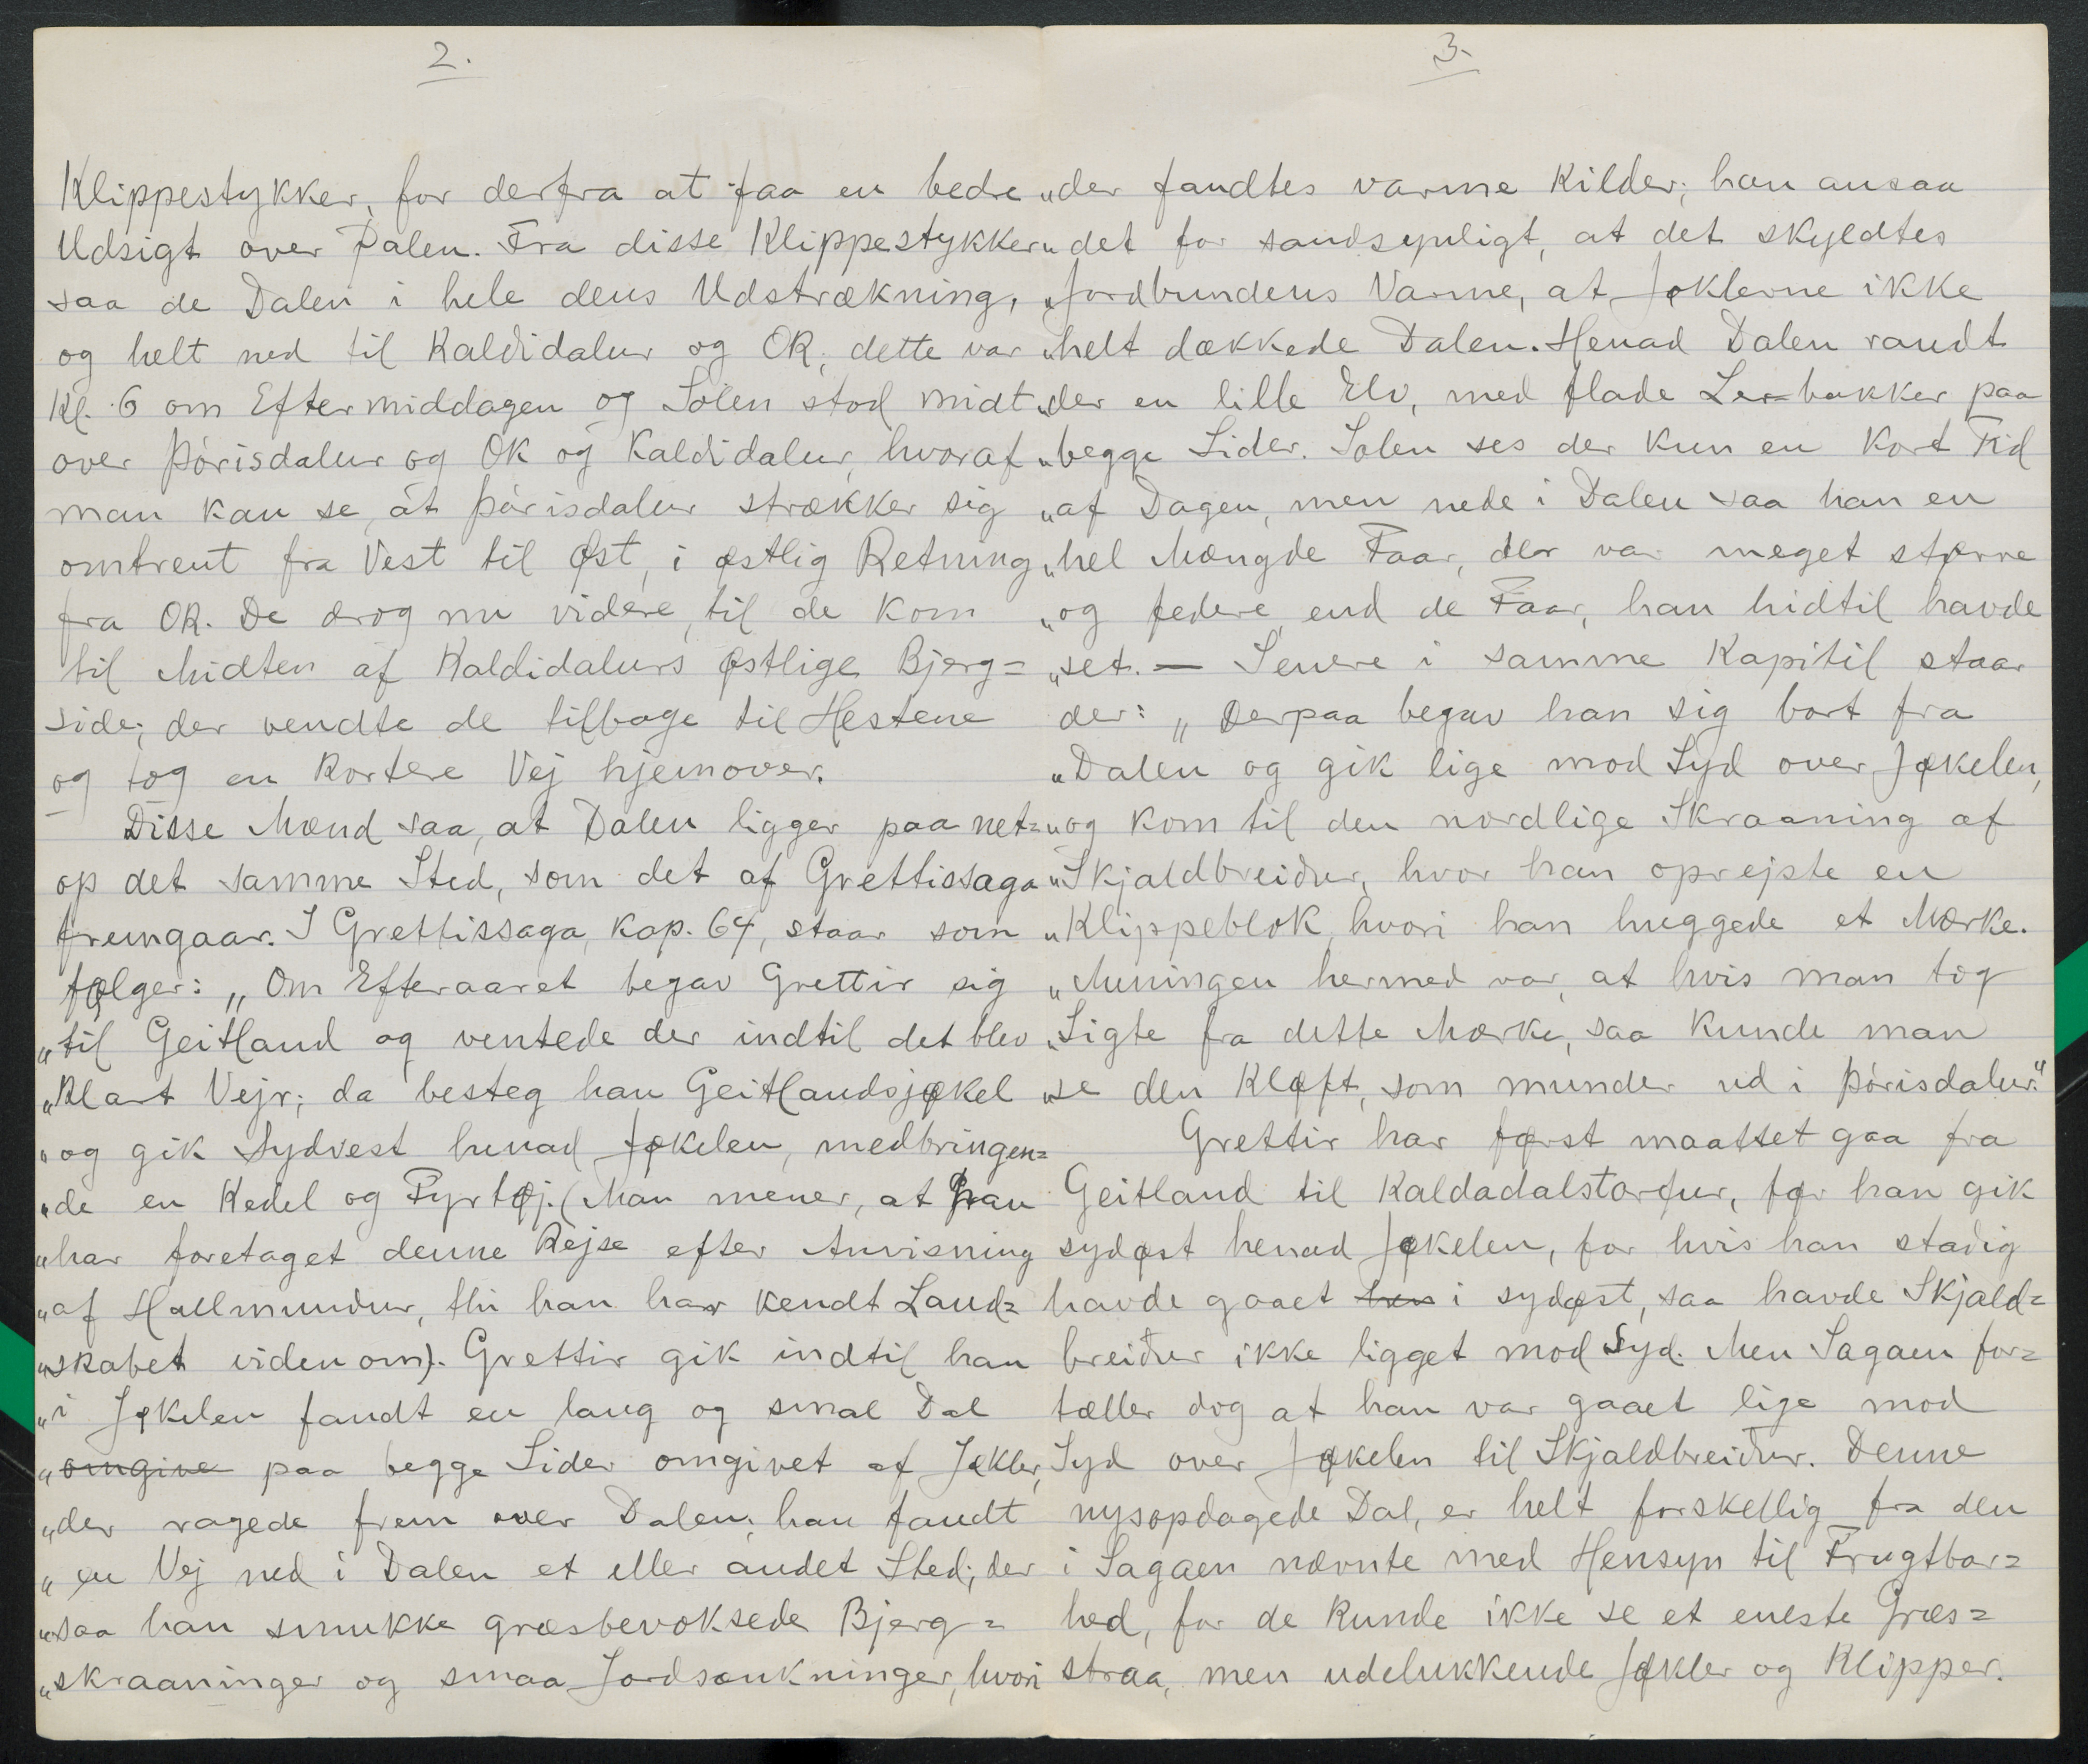 2.
Klippestykker, for derfra at faa en bedre
Udsigt over Dalen. Fra disse Klippestykker
saa de Dalen i hele dens Udstrækning,
og helt ned til Kaldidalur og OK; dette var
Kl. 6 om Eftermiddagen og Solen stod midt
over Þórisdalur og OK og Kaldidalur, hvoraf
man kan se, at Þórisdalur strækker sig
omtrent fra Vest til Øst, i østlig Retning
fra OK. De drog nu videre, til de kom
til Midten af Kaldidalurs østlige Bjerg=
side; der vendte de tilbage til Hestene
og tog en kortere Vej hjemover.
Disse Mænd saa, at Dalen ligger paa net=
op det samme Sted, som det af Grettissaga
fremgaar. I Grettissaga, Kap. 64, staar som
følger: „Om Efteraaret begav Grettir sig
„til Geitland og ventede der indtil det blev
„klart Vejr; da besteg han Geitlandsjøkel
„og gik Sydvest henad Jøkelen, medbringen=
„de en Kedel og Fyrtøj. (Man mener, at han
„har foretaget denne Rejse efter Anvisning
„af Hallmundur, thi han har kendt Land=
„skabet viden om). Grettir gik indtil han
„i Jøkelen fandt en lang og smal Dal
„omgive paa begge Sider omgivet af Jøkler,
„der ragede frem over Dalen; han fandt
„en Vej ned i Dalen et eller andet Sted; der
„saa han smukke græsbevoksede Bjerg=
„skraaninger og smaa Jordsænkninger, hvori
3.
„der fandtes varme Kilder; han ansaa
„det for sandsynligt, at det skyldtes
„Jordbundens Varme, at Jøklerne ikke
„helt dækkede Dalen. Henad Dalen randt
„der en lille Elv, med flade Ler=bakker paa
„begge Sider. Solen ses der kun en kort Tid
„af Dagen, men nede i Dalen saa han en
„hel Mængde Faar, der var meget større
„og federe end de Faar, han hidtil havde
„set. — Senere i samme Kapitil staar
der: „Derpaa begav han sig bort fra
„Dalen og gik lige mod Syd over Jøkelen,
„og kom til den nordlige Skraaning af
„Skjaldbreiður, hvor han oprejste en
„Klippeblok, hvori han huggede et Mærke.
„Meningen hermed var, at hvis man tog
„Sigte fra dette Mærke, saa kunde man
„se den Kløft, som munder ud i Þórisdalur."
Grettir har først maattet gaa fra
Geitland til Kaldadalstorfur, før han gik
sydøst henad Jøkelen, for hvis han stadig
havde gaaet hen i sydøst, saa havde Skjald=
breiður ikke ligget mod Syd. Men Sagaen for=
tæller dog at han var gaaet lige mod
Syd over Jøkelen til Skjaldbreiður. Denne
nysopdagede Dal, er helt forskellig fra den
i Sagaen nævnte med Hensyn til Frugtbar=
hed, for de kunde ikke se et eneste Græs=
straa, men udelukkende Jøkler og Klipper.